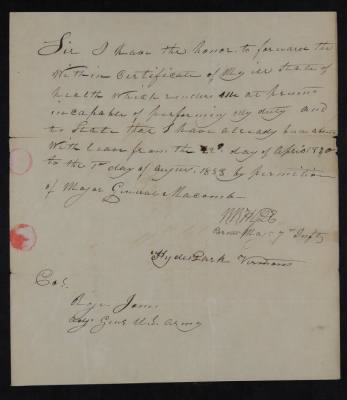 Sir I have the honor to forward the
within Certificate of My ill State of
health which renders me at present
incapable of performing my duty and
to State that I have already been absent
With leave from the 22d day of April
to the 1st day of August 1833 by permition
of Major General Macomb
7th Infty
Hyde Park Vermont
Col.
Roger Jones
Adj. Genl. U.S. Army